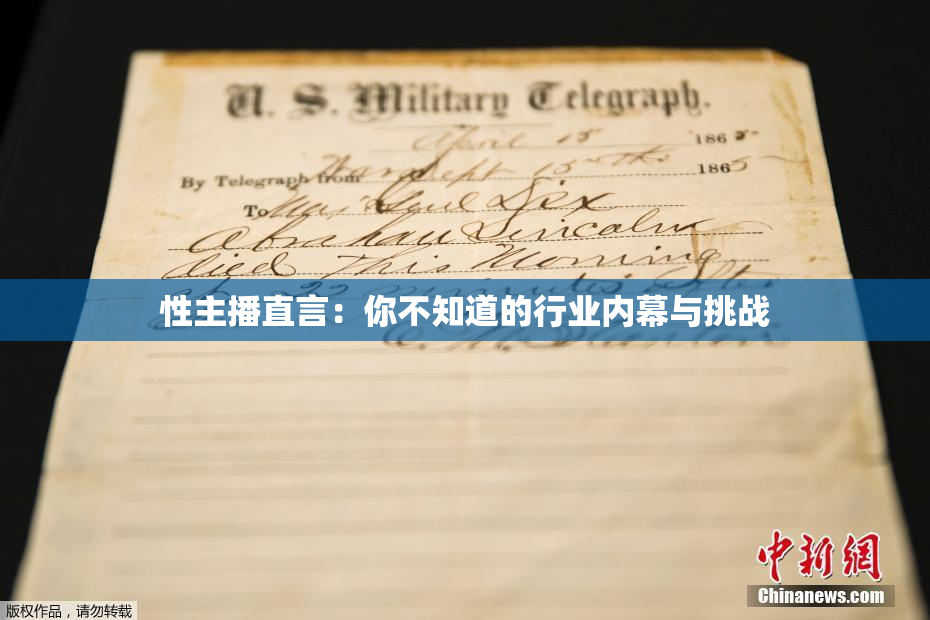 U. S. Military Telegraph.
April 15 1865
By Telegraph from War Dept 15th 1865
To Maj Genl Dix
Abraham Lincoln
died This Morning
at 22 minutes after
性主播直言：你不知道的行业内幕与挑战
E. M. Stanton
中新网
Chinanews.com
版权作品，请勿转载